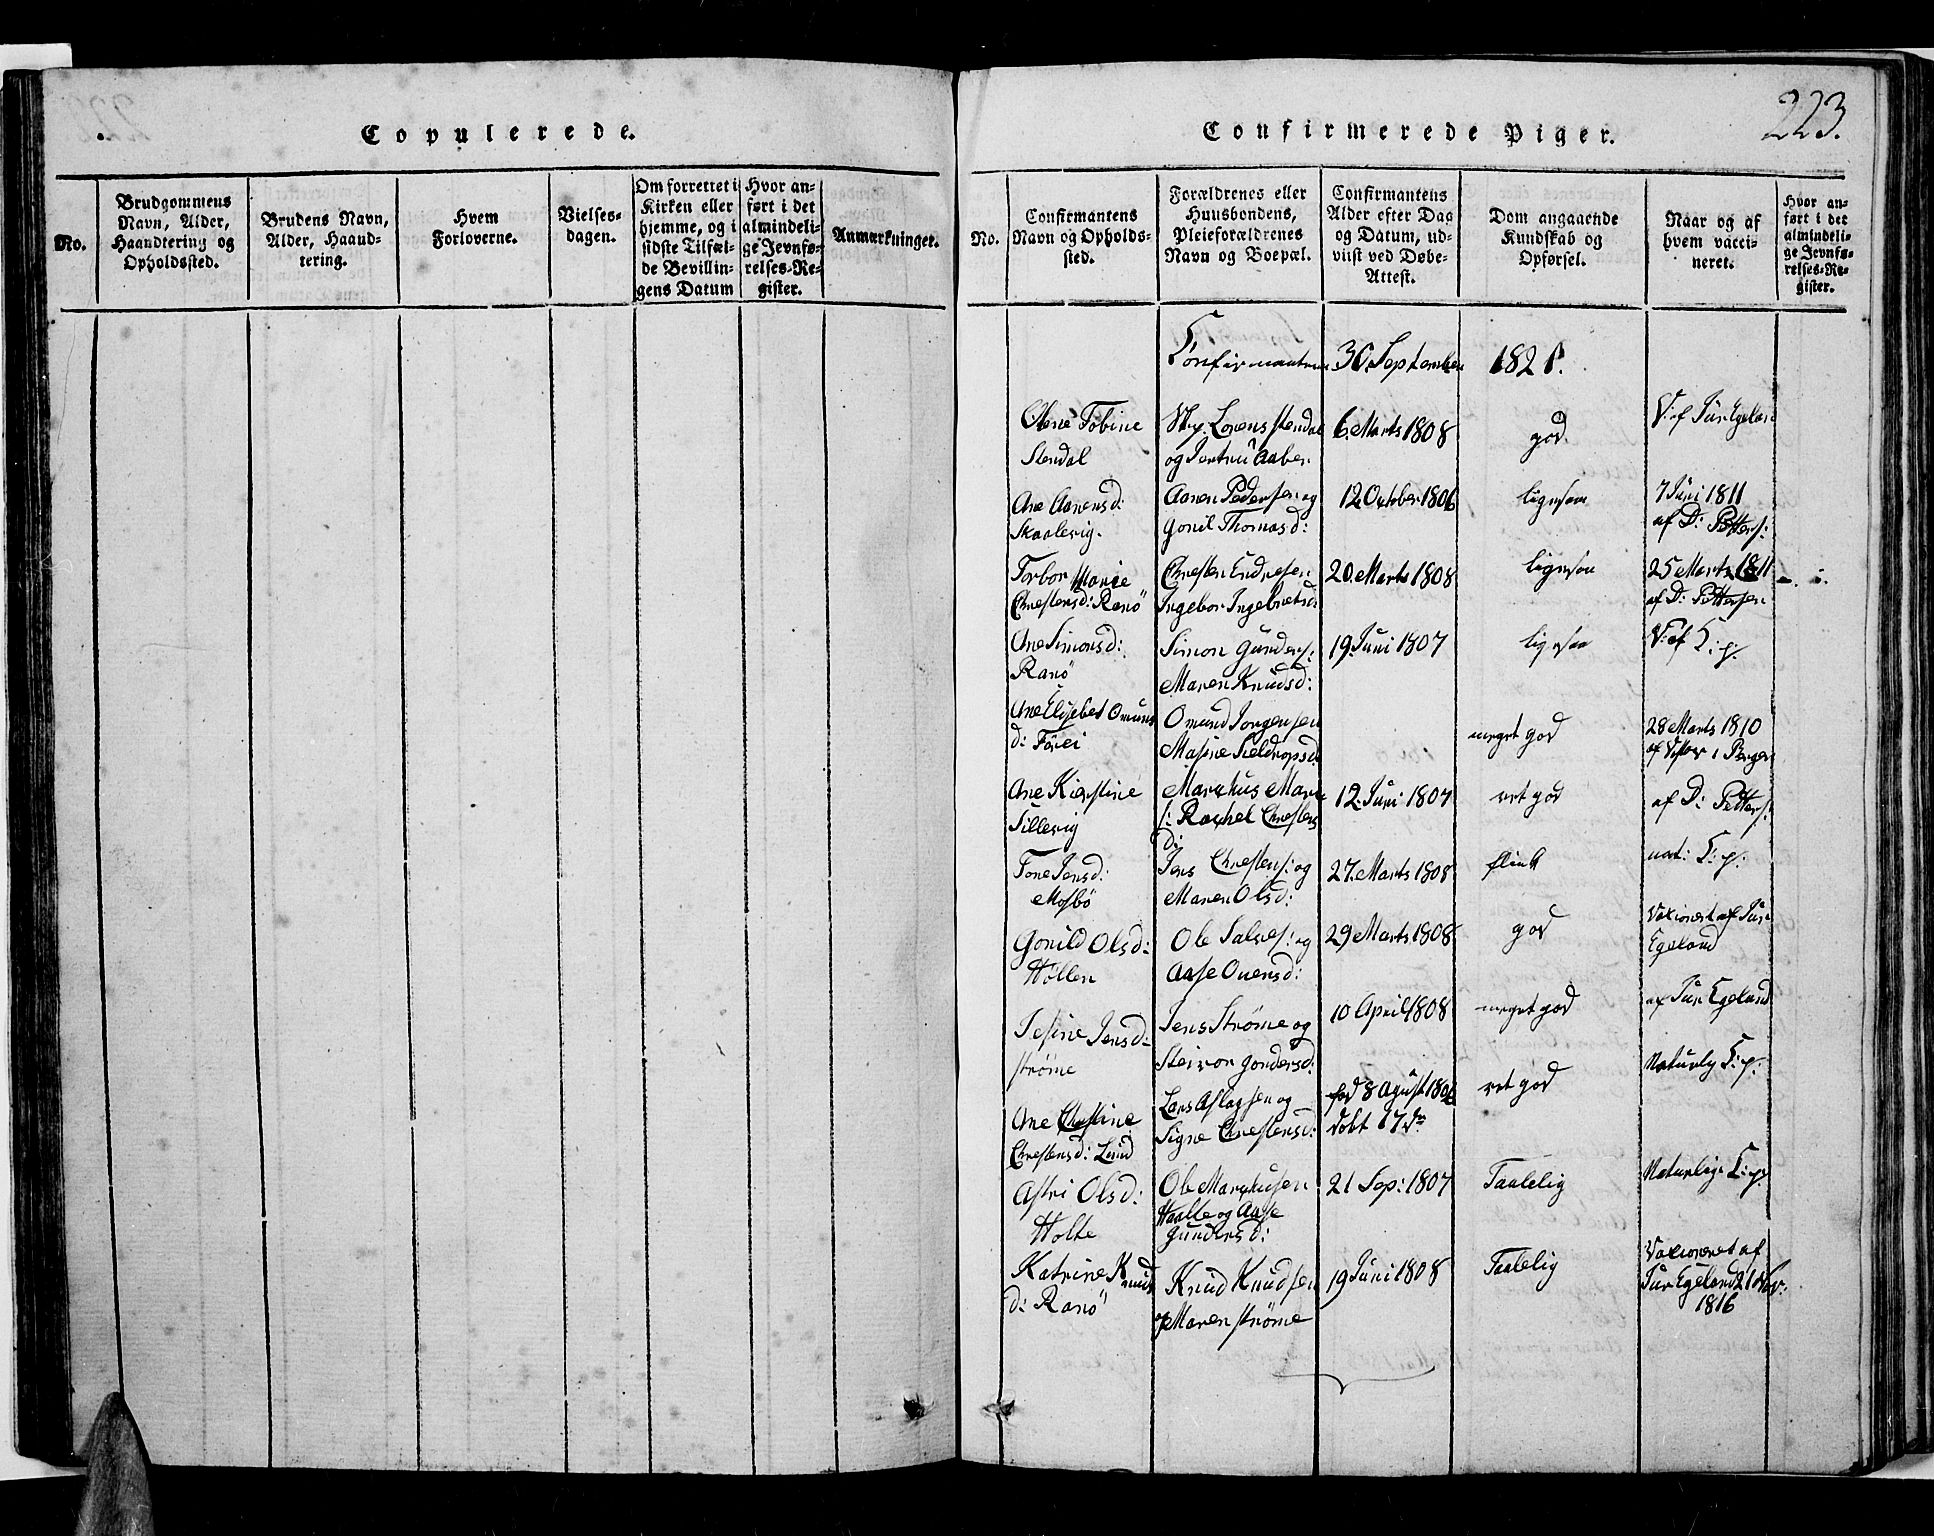 Copulerede.
No.
Brudgommens
Navn, Alder,
Haandtering og
Opholdssted.
Brudens Navn,
Alder, Haand-
tering.
Hvem
Forloverne.
Vielses-
dagen.
Om forrettet i
Kirken eller
hjemme, og i
sidste Tilfæl-
de Bevillin-
gens Datum
Hvor an-
ført i det
almindeli-
ge Jevnfø-
relses-Re-
gister.
Anmærkninger.
223.
Confirmerede Piger.
No.
Confirmantens
Navn og Opholds-
sted.
Forældrenes eller
Huusbondens,
Pleieforældrenes
Navn og Boepæl.
Confirmantens
Alder efter Dag
og Datum, ud-
viist ved Døbe-
Attest.
Dom angaaende
Kundskab og
Opførsel.
Naar og af
hvem vacci-
neret.
Hvor an-
ført i det
almindeli-
ge Jevnfø-
relses-Re-
gister.
30 September 1821.
Olene Tobine
Stendal
Lorens Stendal
og Jertru Aaber
6. Marts 1808
god
V: af Jur Egelan
Ane Aanensd:
Skaalevig.
Aanen Pedersen og
Gonil Thomasd:
12 October 1806
ligesaa
7 Juni 1811
af D: Petters:
Torbor Marie
Chrestensd: Ranö
Chresten Endresen
Ingebor Ingebretsd:
20. Marts 1808
ligesaa
25 Marts 1811
af D: Pettersen
Ane Simonsd:
Ranö
Simon Gunders:
Maren Knudsd:
19. Juni 1807
ligesaa
V: af K: p:
Ane Elisebet Omuns
d:
Omund Jorgensen
meget god
28 Marts 1810
Ane Kierstine
Tillevig
Markus Mark
s: Rachel Chrestens
d:
12. Juni 1807
ret god
af D: Petters:
Tone Jensd:
Mosbö
Jens Chrestens: og
Maren Olsd:
27. Marts 1808
flink
nat: K: p:
Gonild Olsd:
Höllen
Ole Salves: og
Aase Onensd:
29 Marts 1808
god
Vaxineret af Jur
Egeland
Jesine Jensd:
Ströme
Jens Ströme og
Steivor Gondersd:
10 April 1808
meget god
af Jur Egeland
Ane Chrestine
Chrestensd: Lund
Lars Aslagsen og
Signe Chrestensd:
fød 8 Agust 1806
dobt 17 do
ret god
Naturlig K: p:
Astri Olsd:
Holte
Ole Markusen
Haalte og Aase
Gundersd:
21 Sep: 1807
Taalelig
Naturlige K: p:
Katrine Knuds
d: Ranö
Knud Knudsen
og Maren Ströme
19 Juni 1808
Taalelig
Vaxineret af
Jur Egeland 21 Nov:
1816